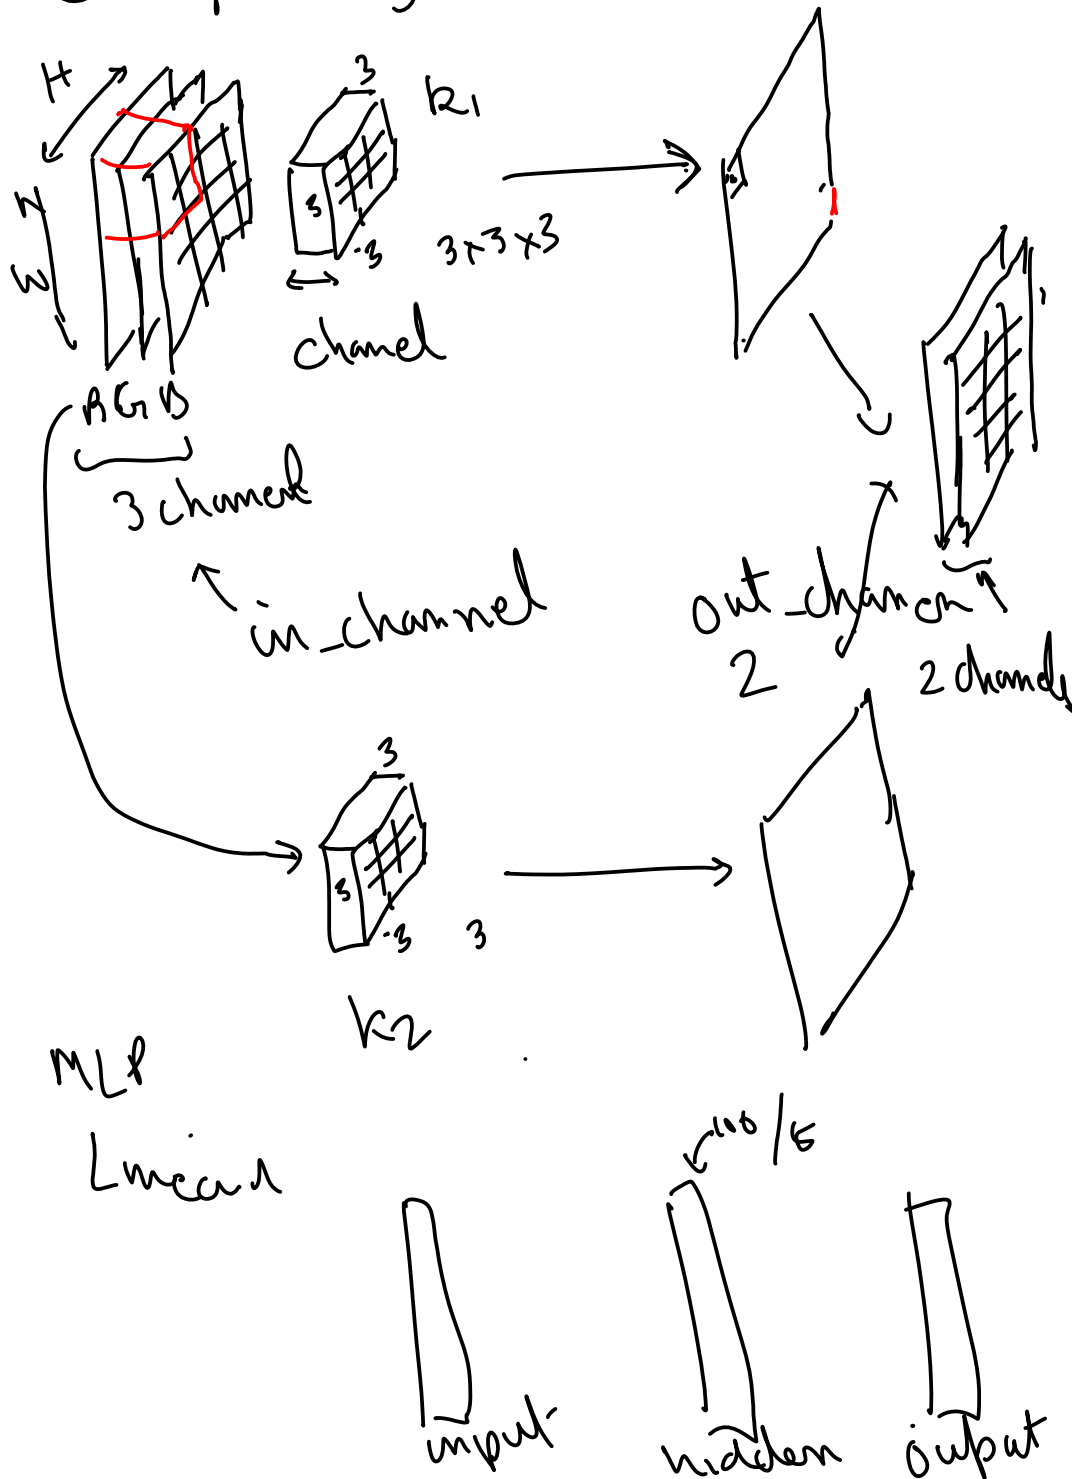 H
W
3
k1
3
3
3x3x3
channel
RGB
3 channel
in_channel
out_channel
2
2 channels
3
3
3
3
k2
MLP
Linear
100/
input
hidden
output